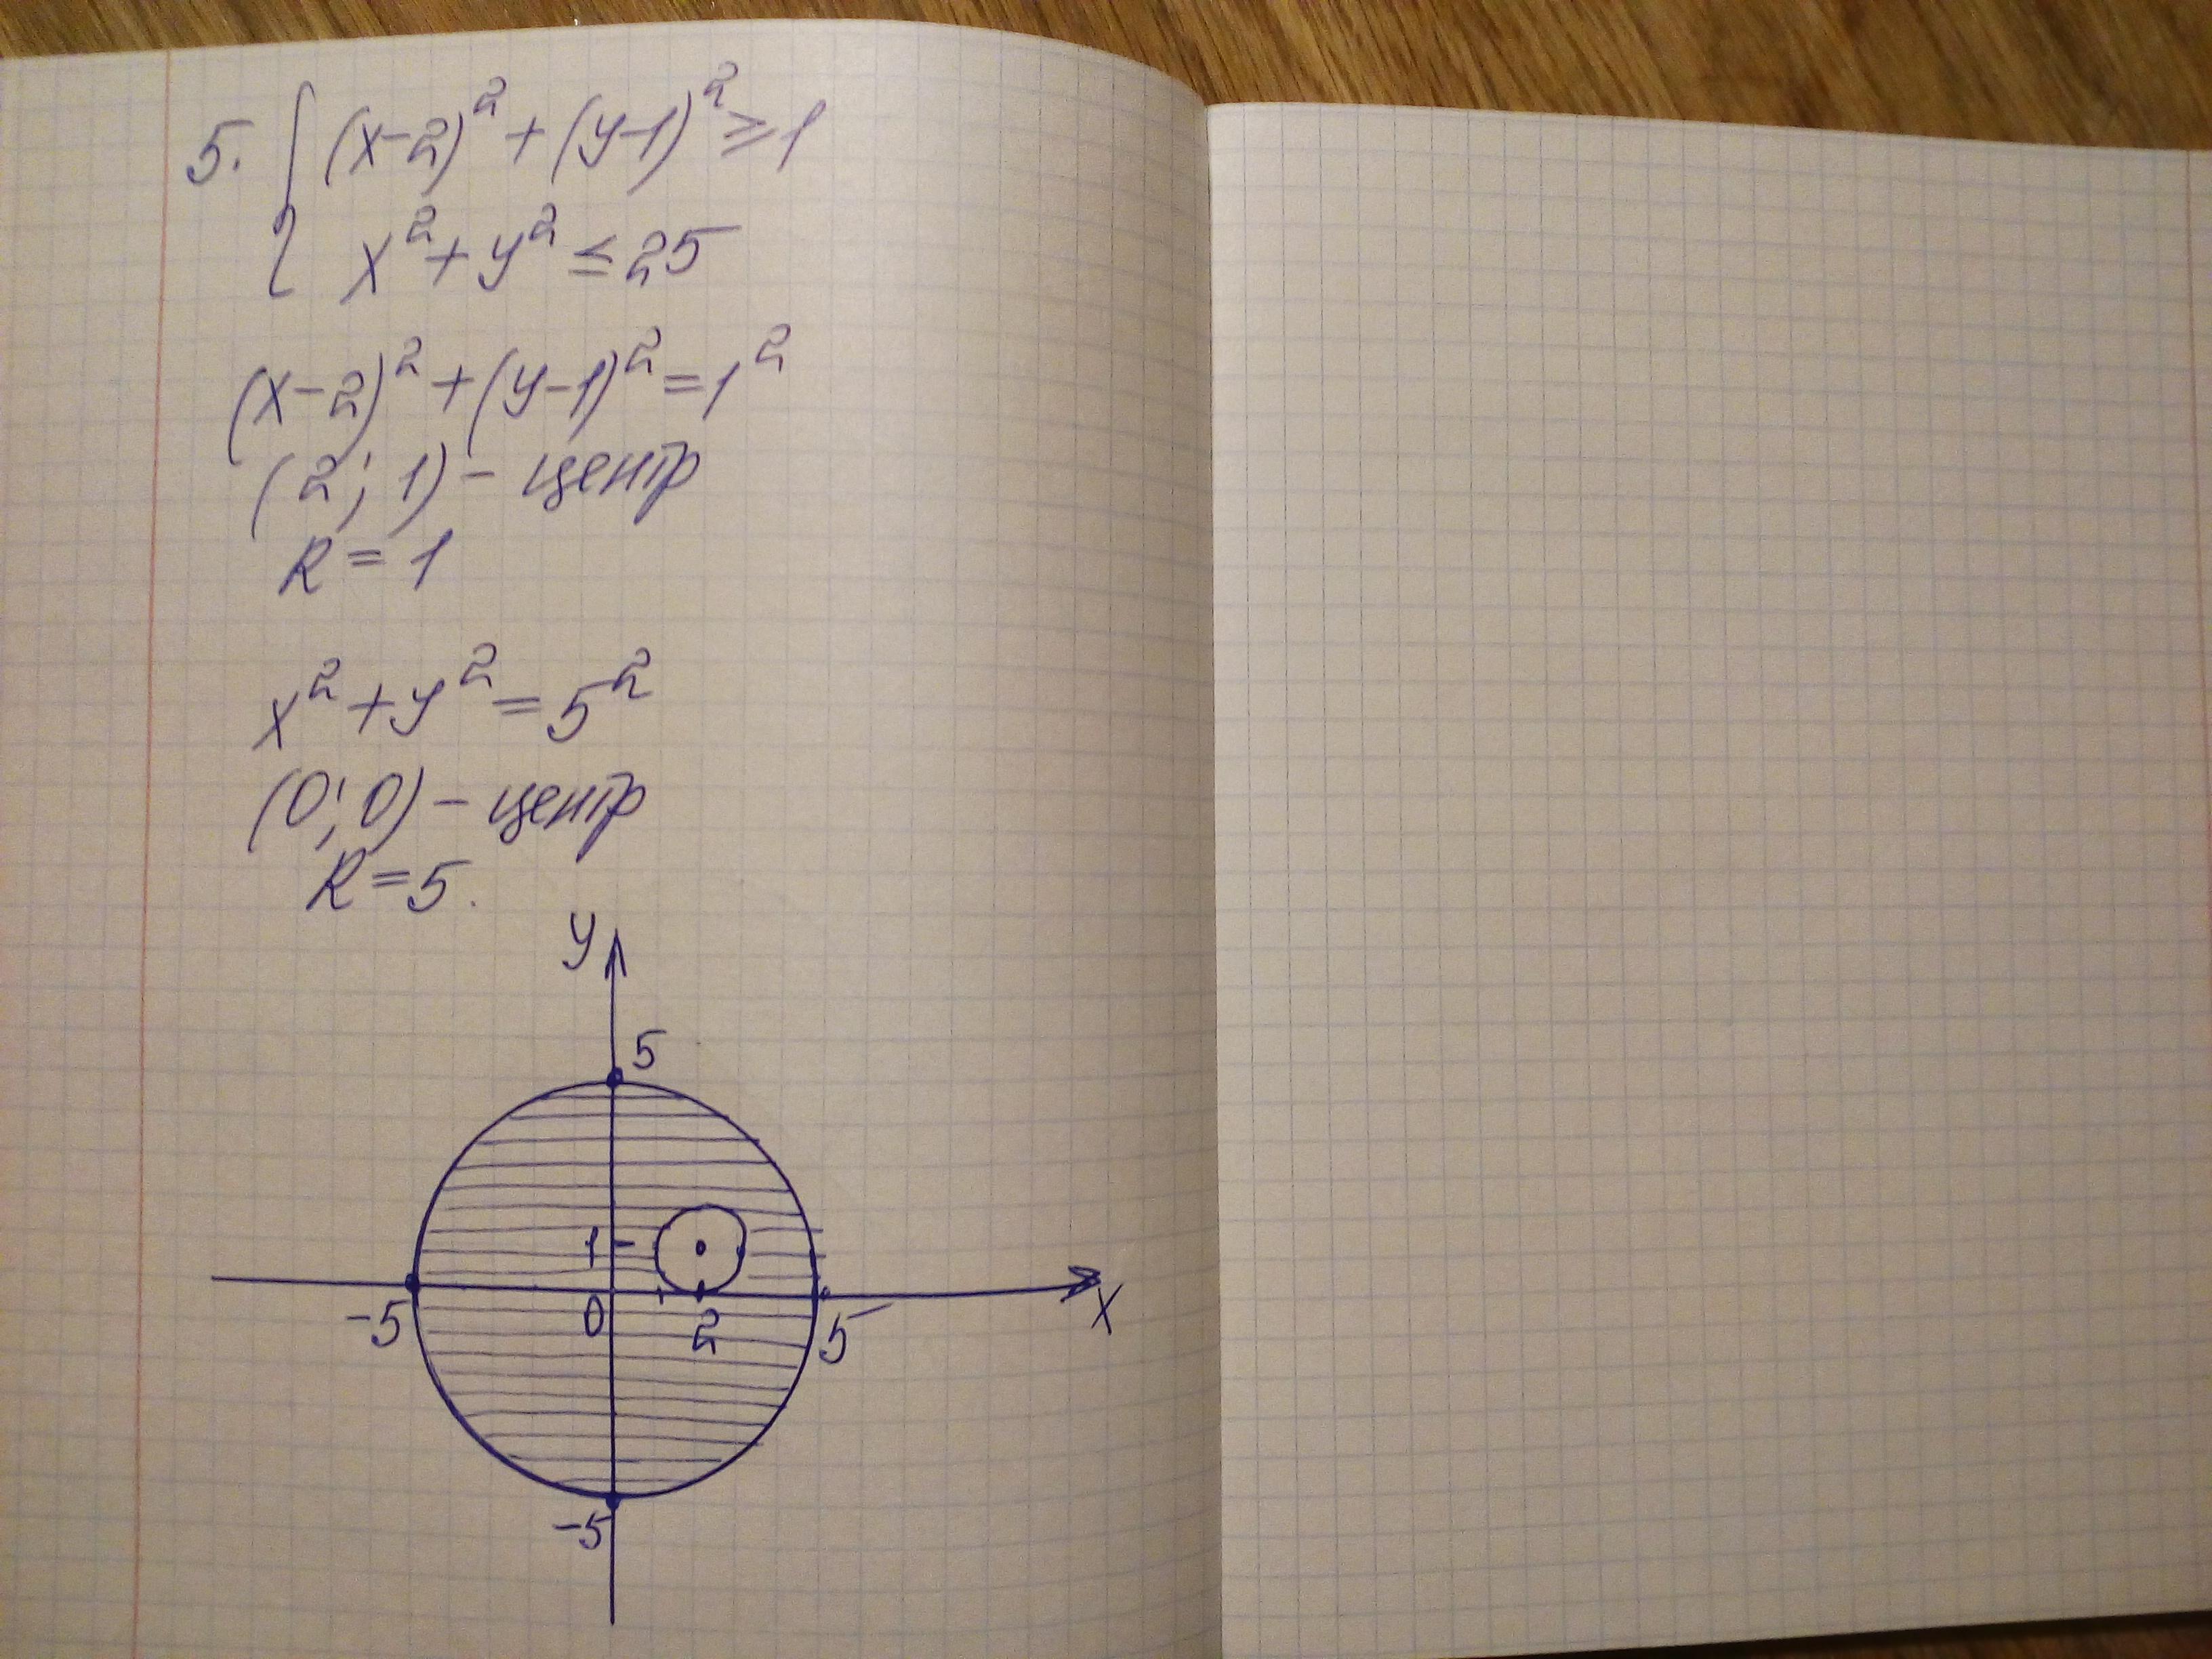 5. { (x-2)² + (y-1)² ≥ 1
x² + y² ≤ 25
(x-2)² + (y-1)² = 1²
(2; 1) - центр
R = 1
x² + y² = 5²
(0; 0) - центр
R = 5.
y
5
1
-5 0 2 5 x
-5